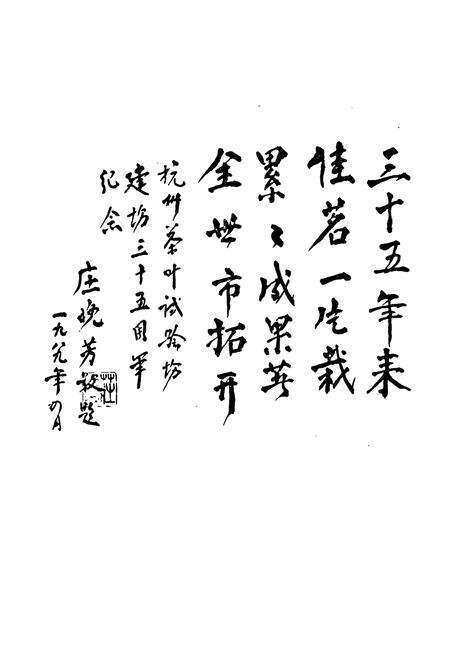 三十五年来
佳茗一栽
累々成果
全世市拓开
杭州茶叶试验场
建场三十五周年
纪念
庄晚芳敬题
一九八九年四月